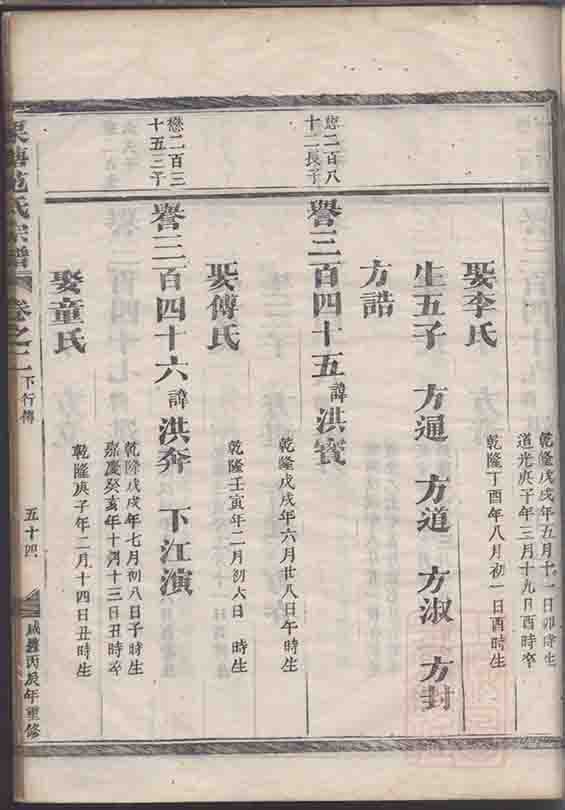 乾隆戊戌年五月十一日卯時生
道光庚子年三月十九日酉時卒
娶李氏
乾隆丁酉年八月初一日酉時生
生五子　方通　方道　方淑　方封
方誥
懋二百八
十二長子
譽二百四十五諱洪賓
乾隆戊戌年六月廿八日午時生
娶傅氏
乾隆壬寅年二月初六日　時生
懋二百三
十五三子
譽二百四十六諱洪奔　下江演
乾隆戊戌年七月初八日子時生
嘉慶癸亥年十月十三日丑時卒
娶童氏
乾隆庚子年二月十四日丑時生
范氏宗譜　卷之二　下行傳　五十四　咸豐丙辰年重修